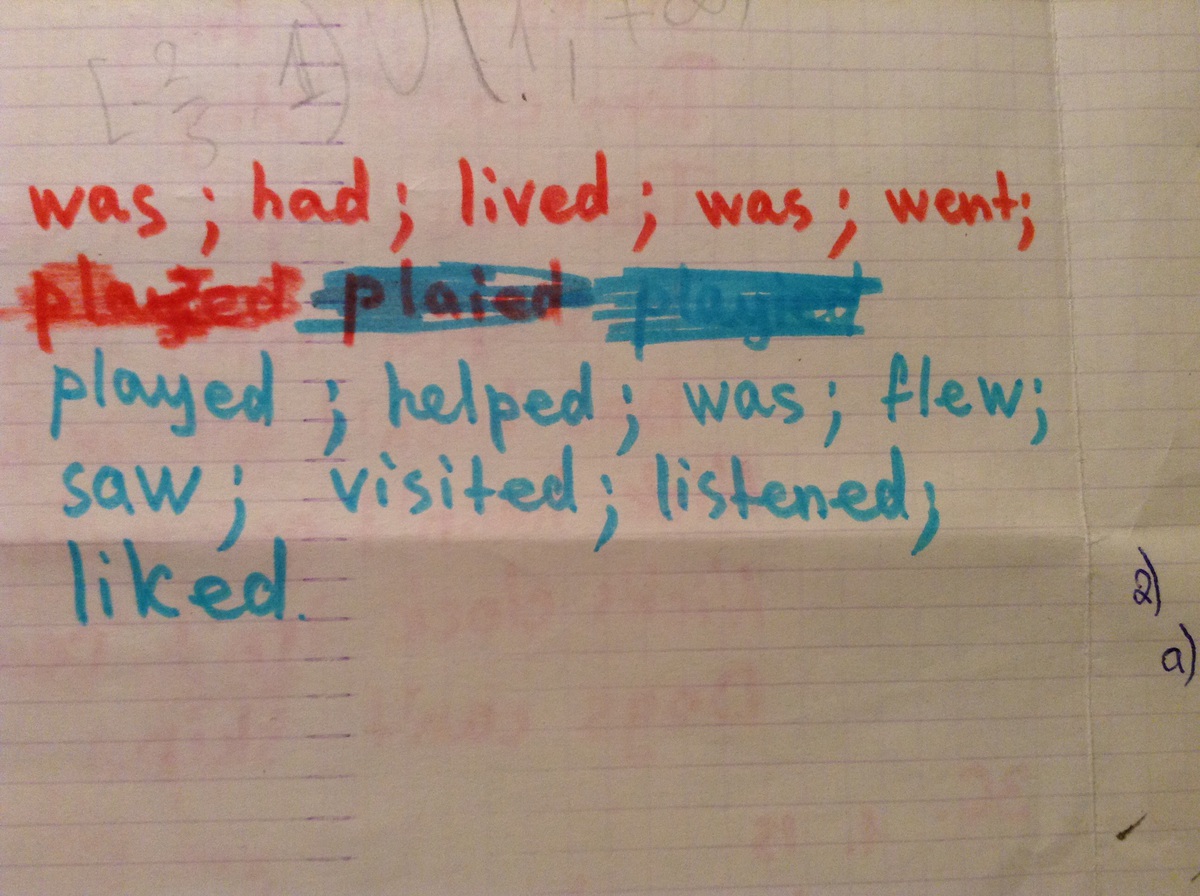 [-2/3, 1) ∪ (1, +∞)
was; had; lived; was; went;
plaied
played; helped; was; flew;
saw; visited; listened;
liked.
2)
a)